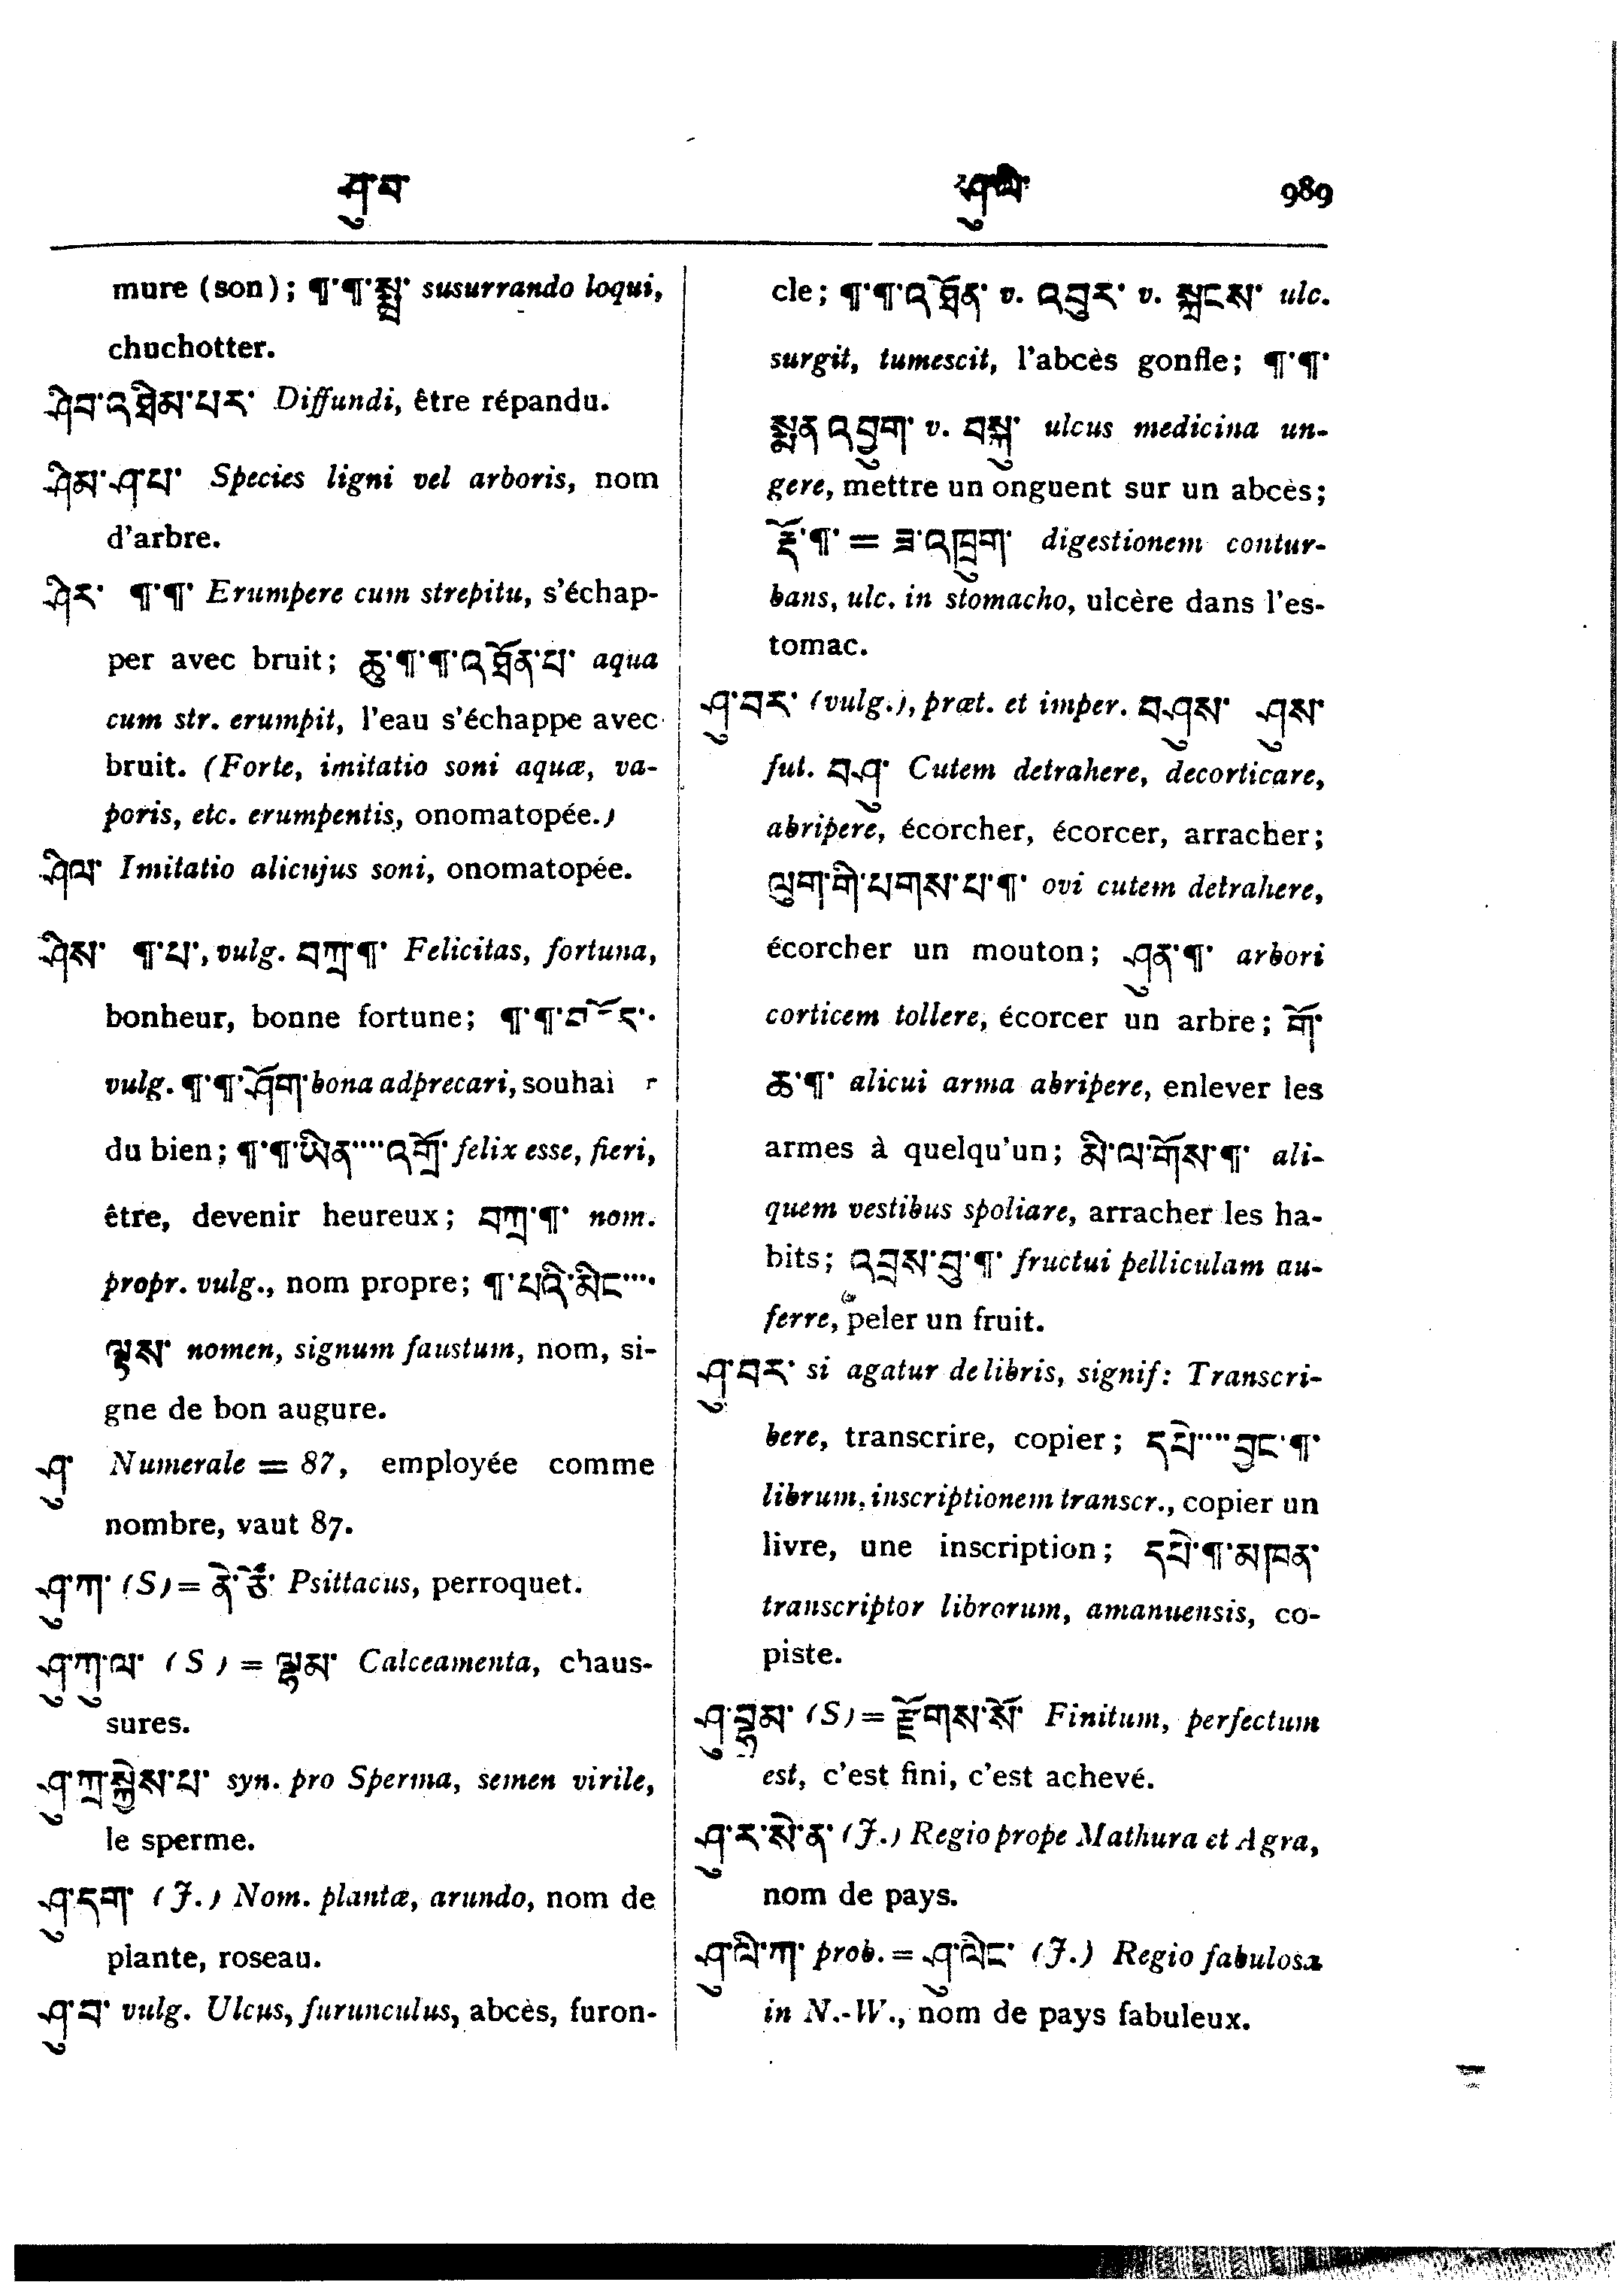 ཤུ་བ་ ཤུ་ལི་ 989
mure (son); ¶་¶་སྨྲ་ susurrando loqui,
chuchotter.
ཤིབ་འཐིམ་པར་ Diffundi, être répandu.
ཤིམ་ཤ་པ་ Species ligni vel arboris, nom
d'arbre.
ཤིར་ ¶་¶་ Erumpere cum strepitu, s'échap-
per avec bruit; ཆུ་¶་¶་འཐོན་པ་ aqua
cum str. erumpit, l'eau s'échappe avec
bruit. (Forte, imitatio soni aquæ, va-
poris, etc. erumpentis, onomatopée.)
ཤིལ་ Imitatio alicujus soni, onomatopée.
ཤིས་ ¶་པ་, vulg. བཀྲ་¶་ Felicitas, fortuna,
bonheur, bonne fortune; ¶་¶་
vulg. ¶་¶་ཤོག་ bona adprecari, souhai r
du bien; ¶་¶་ཡིན་....འགྲོ་ felix esse, fieri,
être, devenir heureux; བཀྲ་¶་ nom.
propr. vulg., nom propre; ¶་པའི་མིང་....
ལྟས་ nomen, signum faustum, nom, si-
gne de bon augure.
ཤུ་ Numerale = 87, employée comme
nombre, vaut 87.
ཤུ་ཀ་ (S) = ནེ་ཙོ་ Psittacus, perroquet.
ཤུ་ཀུ་ལ་ (S) = ལྷམ་ Calceamenta, chaus-
sures.
ཤུ་ཀྲ་སྐྱེས་པ་ syn. pro Sperma, semen virile,
le sperme.
ཤུ་དག་ (J.) Nom. plantæ, arundo, nom de
plante, roseau.
ཤུ་བ་ vulg. Ulcus, furunculus, abcès, furon-
cle; ¶་¶་འཐོན་ v. འབུར་ v. སྐྲངས་ ulc.
surgit, tumescit, l'abcès gonfle; ¶་¶་
སྨན་འབྱུག་ v. བསྐུ་ ulcus medicina un-
gere, mettre un onguent sur un abcès;
རྡོ་¶་ = ཟ་འཁྲུག་ digestionem contur-
bans, ulc. in stomacho, ulcère dans l'es-
tomac.
ཤུ་བར་ (vulg.), præt. et imper. བཤུས་ ཤུས་
fut. བཤུ་ Cutem detrahere, decorticare,
abripere, écorcher, écorcer, arracher;
ལུག་གི་པགས་པ་¶་ ovi cutem detrahere,
écorcher un mouton; ཤུན་¶་ arbori
corticem tollere, écorcer un arbre; གོ་
ཆ་¶་ alicui arma abripere, enlever les
armes à quelqu'un; མི་ལ་གོས་¶་ ali-
quem vestibus spoliare, arracher les ha-
bits; འབྲས་བུ་¶་ fructui pelliculam au-
ferre, peler un fruit.
ཤུ་བར་ si agatur de libris, signif: Transcri-
bere, transcrire, copier; དཔེ་....བྱང་¶་
librum, inscriptionem transcr., copier un
livre, une inscription; དཔེ་¶་མཁན་
transcriptor librorum, amanuensis, co-
piste.
ཤུ་བྷམ་ (S) = རྫོགས་སོ་ Finitum, perfectum
est, c'est fini, c'est achevé.
ཤུ་ར་སེ་ན་ (J.) Regio prope Mathura et Agra,
nom de pays.
ཤུ་ལི་ཀ་ prob. = ཤུ་ལིང་ (J.) Regio fabulosa
in N.-W., nom de pays fabuleux.